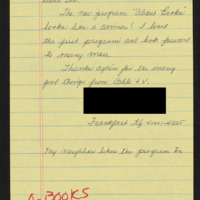 Dear Sir.
The new program "About Books"
looks like a winner! I liked
the first program and look forward
to many more.
Thanks again for the many
good things from Cable TV.
Frankfort Ky
My neighbor likes the program too
A-BOOKS